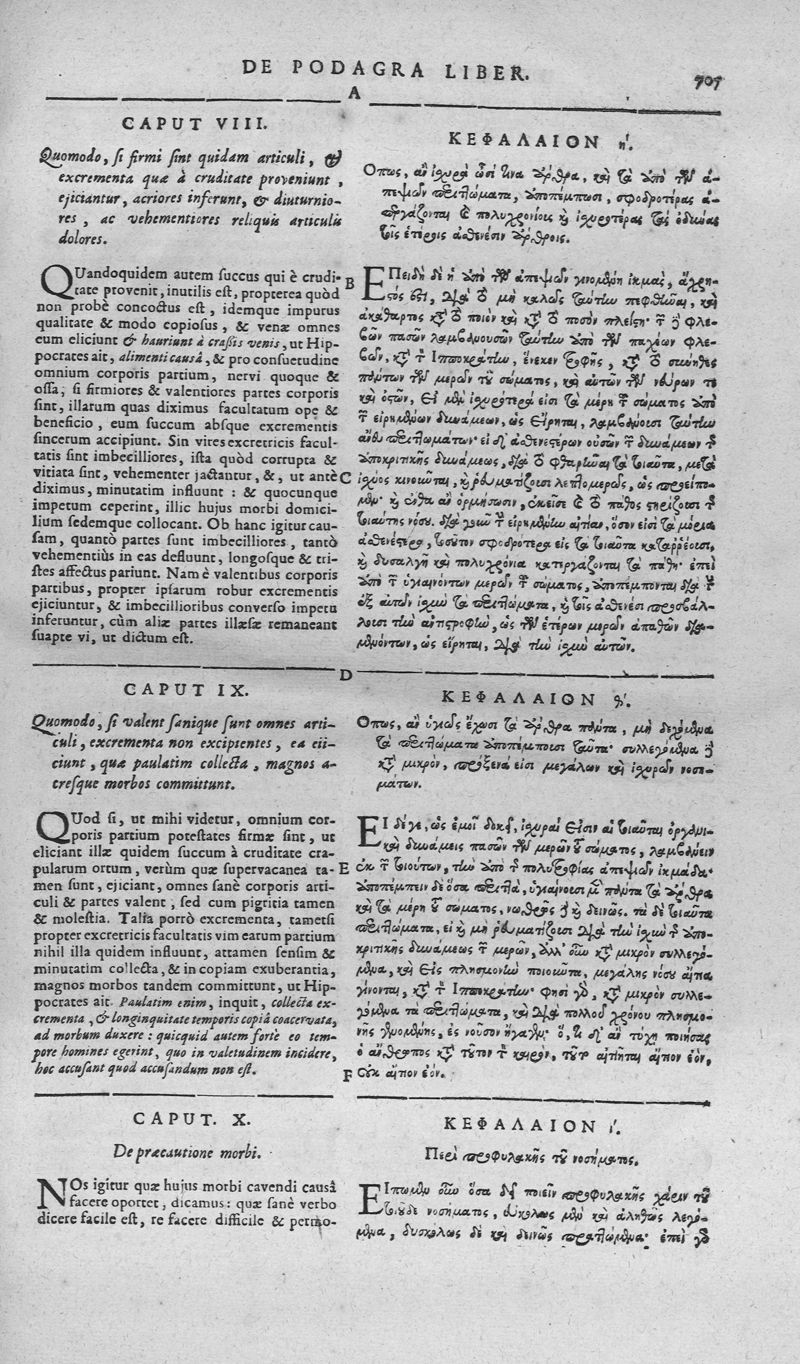 DE PODAGRA LIBER.
707
A
CAPUT VIII.
Quomodo, si firmi sint quidam articuli, &
excrementa quæ à cruditate proveniunt,
ejiciantur, acriores inferunt, & diuturnio-
res, ac vehementiores reliquis articulis
dolores.
QUandoquidem autem succus qui è crudi-
tate provenit, inutilis est, propterea quòd
non probè concoctus est, idemque impurus
qualitate & modo copiosus, & venæ omnes
eum eliciunt & hauriunt à crassis venis, ut Hip-
pocrates ait, alimenti causâ, & pro consuetudine
omnium corporis partium, nervi quoque &
ossa; si firmiores & valentiores partes corporis
sint, illarum quas diximus facultatum ope &
beneficio, eum succum absque excrementis
sincerum accipiunt. Sin vires excretricis facul-
tatis sint imbecilliores, ista quòd corrupta &
vitiata sint, vehementer jactantur, &, ut antè
diximus, minutatim influunt: & quocunque
impetum ceperint, illic hujus morbi domici-
lium sedemque collocant. Ob hanc igitur cau-
sam, quantò partes sunt imbecilliores, tantò
vehementiùs in eas defluunt, longosque & tri-
stes affectus pariunt. Nam è valentibus corporis
partibus, propter ipsarum robur excrementis
ejiciuntur, & imbecillioribus converso impetu
inferuntur, cùm aliæ partes illæsæ remaneant
suapte vi, ut dictum est.
CAPUT IX.
Quomodo, si valent sanique sunt omnes arti-
culi, excrementa non excipientes, ea eii-
ciunt, quæ paulatim collecta, magnos a-
cresque morbos committunt.
QUod si, ut mihi videtur, omnium cor-
poris partium potestates firmæ sint, ut
eliciant illæ quidem succum à cruditate cra-
pularum ortum, verùm quæ supervacanea ta-
men sunt, ejiciant, omnes sanè corporis arti-
culi & partes valent, sed cum pigritia tamen
& molestia. Talia porrò excrementa, tametsi
propter excretricis facultatis vim earum partium
nihil illa quidem influunt, attamen sensim &
minutatim collecta, & in copiam exuberantia,
magnos morbos tandem committunt, ut Hip-
pocrates ait. Paulatim enim, inquit, collecta ex-
crementa, & longinquitate temporis copiâ coacervata,
ad morbum duxere: quicquid autem fortè eo tem-
pore homines egerint, quo in valetudinem incidere,
hoc accusant quod accusandum non est.
CAPUT. X.
De præcautione morbi.
NOs igitur quæ hujus morbi cavendi causâ
facere oportet, dicamus: quæ sanè verbo
dicere facile est, re facere difficile & permo-
B
C
D
E
F
ΚΕΦΑΛΑΙΟΝ η΄.
Ὅπως, ἂν ἰσχυρὰ ὦσί τινα ἄρθρα, καὶ τὰ ὑπὸ τῶν ἀ-
πεψιῶν περιττώματα, ὑποπέμπωσι, σφοδροτέρας ἀ-
περγάζονται καὶ πολυχρονίους καὶ ἰσχυροτέρας τὰς ὀδύνας
τοῖς ἑτέροις ἀσθενέσιν ἄρθροις.
ΕΠειδὴ δὲ ἡ ὑπὸ τῶν ἀπεψιῶν γινομένη ἰκμὰς, ἄχρη-
στός ἐστι, διὰ τὸ μὴ καλῶς ταύτην πεφθῆναι, καὶ
ἀκάθαρτος κατὰ τὸ ποιὸν καὶ κατὰ τὸ ποσὸν πλείστη· τῶν δὲ φλε-
βῶν πασῶν λαμβανουσῶν ταύτην ὑπὸ τῶν παχέων φλε-
βῶν, κατὰ τὸν Ἱπποκράτην, ἕνεκεν τροφῆς, κατὰ τὸ σύνηθες
πάντων τῶν μερῶν τοῦ σώματος, καὶ αὐτῶν τῶν νεύρων τε
καὶ ὀστῶν, εἰ μὲν ἰσχυρότερά εἰσι τὰ μέρη τοῦ σώματος ὑπὸ
τῶν εἰρημένων δυνάμεων, ὡς εἴρηται, λαμβάνουσι ταύτην
ἄνευ περιττωμάτων· εἰ δὲ ἀσθενεστέρων οὐσῶν τῶν δυνάμεων τῆς
ὑποκριτικῆς δυνάμεως, διὰ τὸ φθαρῆναι τὰ τοιαῦτα, μετὰ
ἰσχύος κινοῦνται, καὶ ῥευματίζουσι λεπτομερῶς, ὡς προείπο-
μεν· καὶ ἔνθα ἂν ὁρμήσωσιν, ἐκεῖσε καὶ τὸ πάθος στηρίζουσι τῆς
τοιαύτης νόσου. διὰ γοῦν τὴν εἰρημένην αἰτίαν, ὅσον εἰσὶ τὰ μόρια
ἀσθενέστερα, τοσοῦτον σφοδρότερα εἰς τὰ τοιαῦτα καταῤῥέουσι,
καὶ δυσαλγῆ καὶ πολυχρόνια κατεργάζονται τὰ πάθη· ἐπεὶ
ὑπὸ τῶν ὑγιαινόντων μερῶν τοῦ σώματος, ὑποπέμπονται διὰ τὴν
ἐξ αὐτῶν ἰσχὺν τὰ περιττώματα, καὶ τοῖς ἀσθενέσι προσβάλ-
λουσι τὴν ἀντιστροφὴν, ὡς τῶν ἑτέρων μερῶν ἀπαθῶν δια-
μενόντων, ὡς εἴρηται, διὰ τὴν ἰσχὺν αὐτῶν.
ΚΕΦΑΛΑΙΟΝ θ΄.
Ὅπως, ἂν ὑγιῶς ἔχωσι τὰ ἄρθρα πάντα, μὴ δεχόμενα
τὰ περιττώματα ὑποπέμπουσι ταῦτα· συλλεγόμενα δὲ
κατὰ μικρὸν, πρόξενά εἰσι μεγάλων καὶ ἰσχυρῶν νοση-
μάτων.
ΕΙ δέ γε, ὡς ἐμοὶ δοκεῖ, ἰσχυραὶ εἰσὶν αἱ τοιαῦται
καὶ δυνάμεις πασῶν τῶν μερῶν τοῦ σώματος, λαμβάνειν
ἐκ τῶν τοιούτων, τὴν ὑπὸ τῆς πολυτροφίας ἀπεψιῶν ἰκμάδα·
ὑποπέμπειν δὲ ὅσα περιττὰ, ὑγιαίνουσι μὲν πάντα τὰ ἄρθρα
καὶ τὰ μέρη τοῦ σώματος, νωθρῶς δὲ καὶ δεινῶς. τὰ δὲ τοιαῦτα
περιττώματα, εἰ καὶ μὴ ῥευματίζουσι διὰ τὴν ἰσχὺν τῆς ὑπο-
κριτικῆς δυνάμεως τῶν μερῶν, ἀλλ' οὖν κατὰ μικρὸν συλλεγό-
μενα, καὶ εἰς πλησμονὴν ποιοῦντα, μεγάλης νόσου αἴτια
γίνονται, κατὰ τὸν Ἱπποκράτην· φησὶ γὰρ, κατὰ μικρὸν συλλε-
γόμενα τὰ περιττώματα, καὶ διὰ πολλοῦ χρόνου πλησμο-
νῆς γενομένης, ἐς νοῦσον ἤγαγεν· ὅ, τι δ' ἂν τύχῃ ποιήσας
ὁ ἄνθρωπος κατὰ τοῦτον τὸν καιρὸν, τοῦτο αἰτιᾶται αἴτιον ἐὸν,
οὐκ αἴτιον ἐόν.
ΚΕΦΑΛΑΙΟΝ ι΄.
Περὶ προφυλακῆς τοῦ νοσήματος.
ΕΙπωμεν οὖν ὅσα δεῖ ποιεῖν προφυλακῆς χάριν τοῦ
τοιοῦδε νοσήματος, εὐκόλως μὲν καὶ ἀληθῶς λεγό-
μενα, δυσκόλως δὲ καὶ δεινῶς πραττόμενα· ἐπεὶ γὰρ